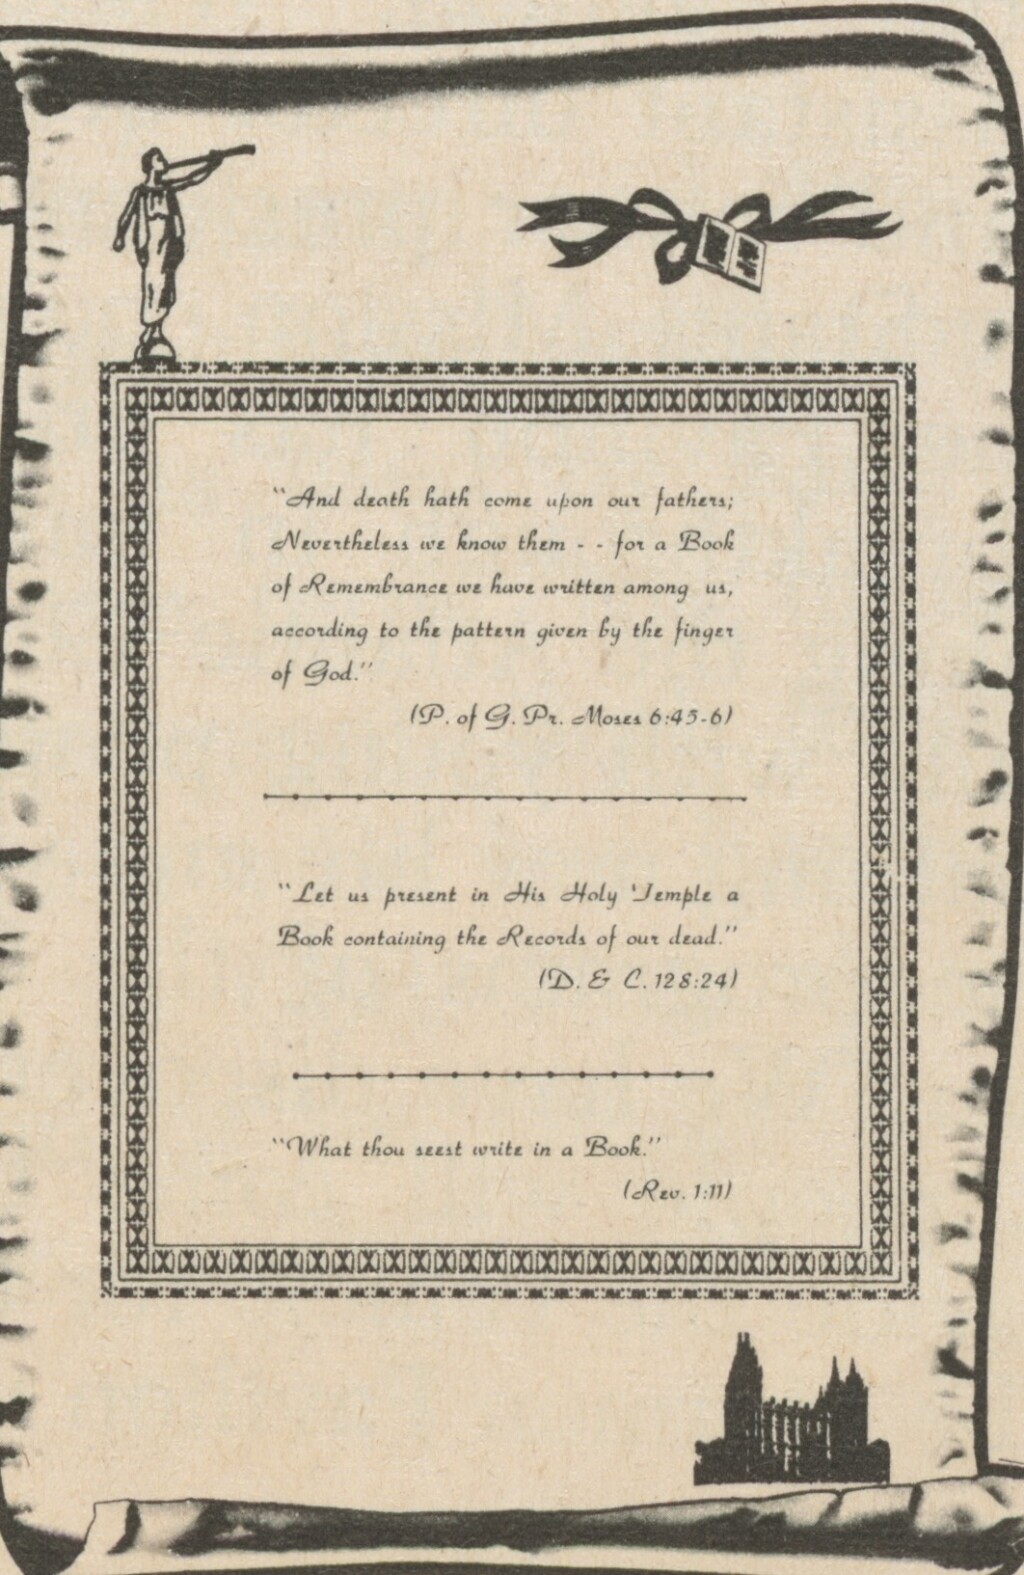 "And death hath come upon our fathers;
Nevertheless we know them - - for a Book
of Remembrance we have written among us,
according to the pattern given by the finger
of God."
(P. of G. Pr. Moses 6:45-6)
"Let us present in His Holy Temple a
Book containing the Records of our dead."
(D. & C. 128:24)
"What thou seest write in a Book."
(Rev. 1:11)